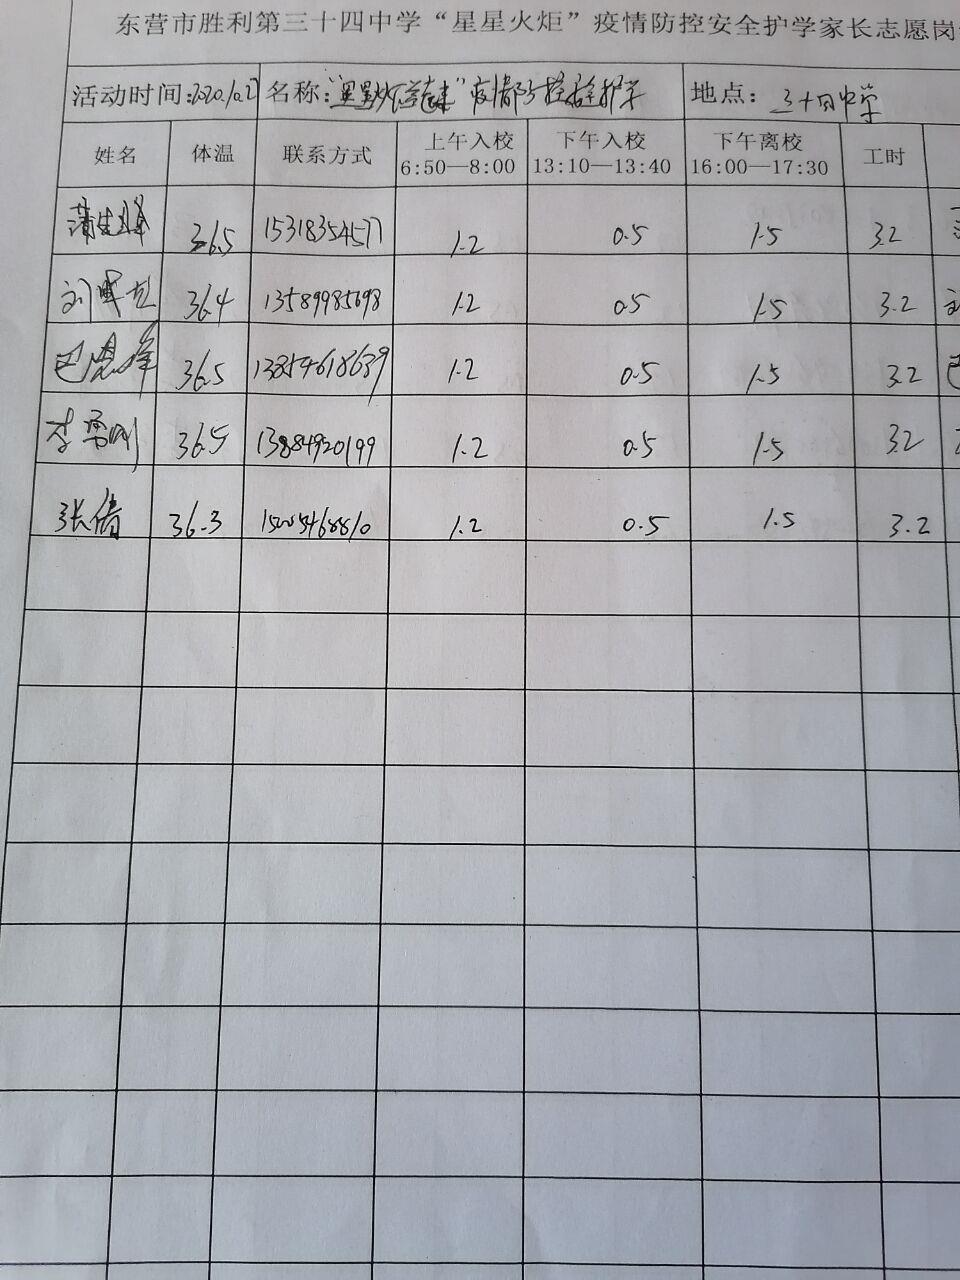 东营市胜利第三十四中学“星星火炬”疫情防控安全护学家长志愿岗
活动时间:2020.10.21 名称: 疫情防控安全护学 地点: 三十四中学
姓名 体温 联系方式 上午入校 6:50—8:00 下午入校 13:10—13:40 下午离校 16:00—17:30 工时
36.5 15318354577 1.2 0.5 1.5 3.2
36.4 13589985698 1.2 0.5 1.5 3.2
36.5 13854618639 1.2 0.5 1.5 3.2
李勇刚 36.5 13884920199 1.2 0.5 1.5 3.2
张倩 36.3 1.2 0.5 1.5 3.2